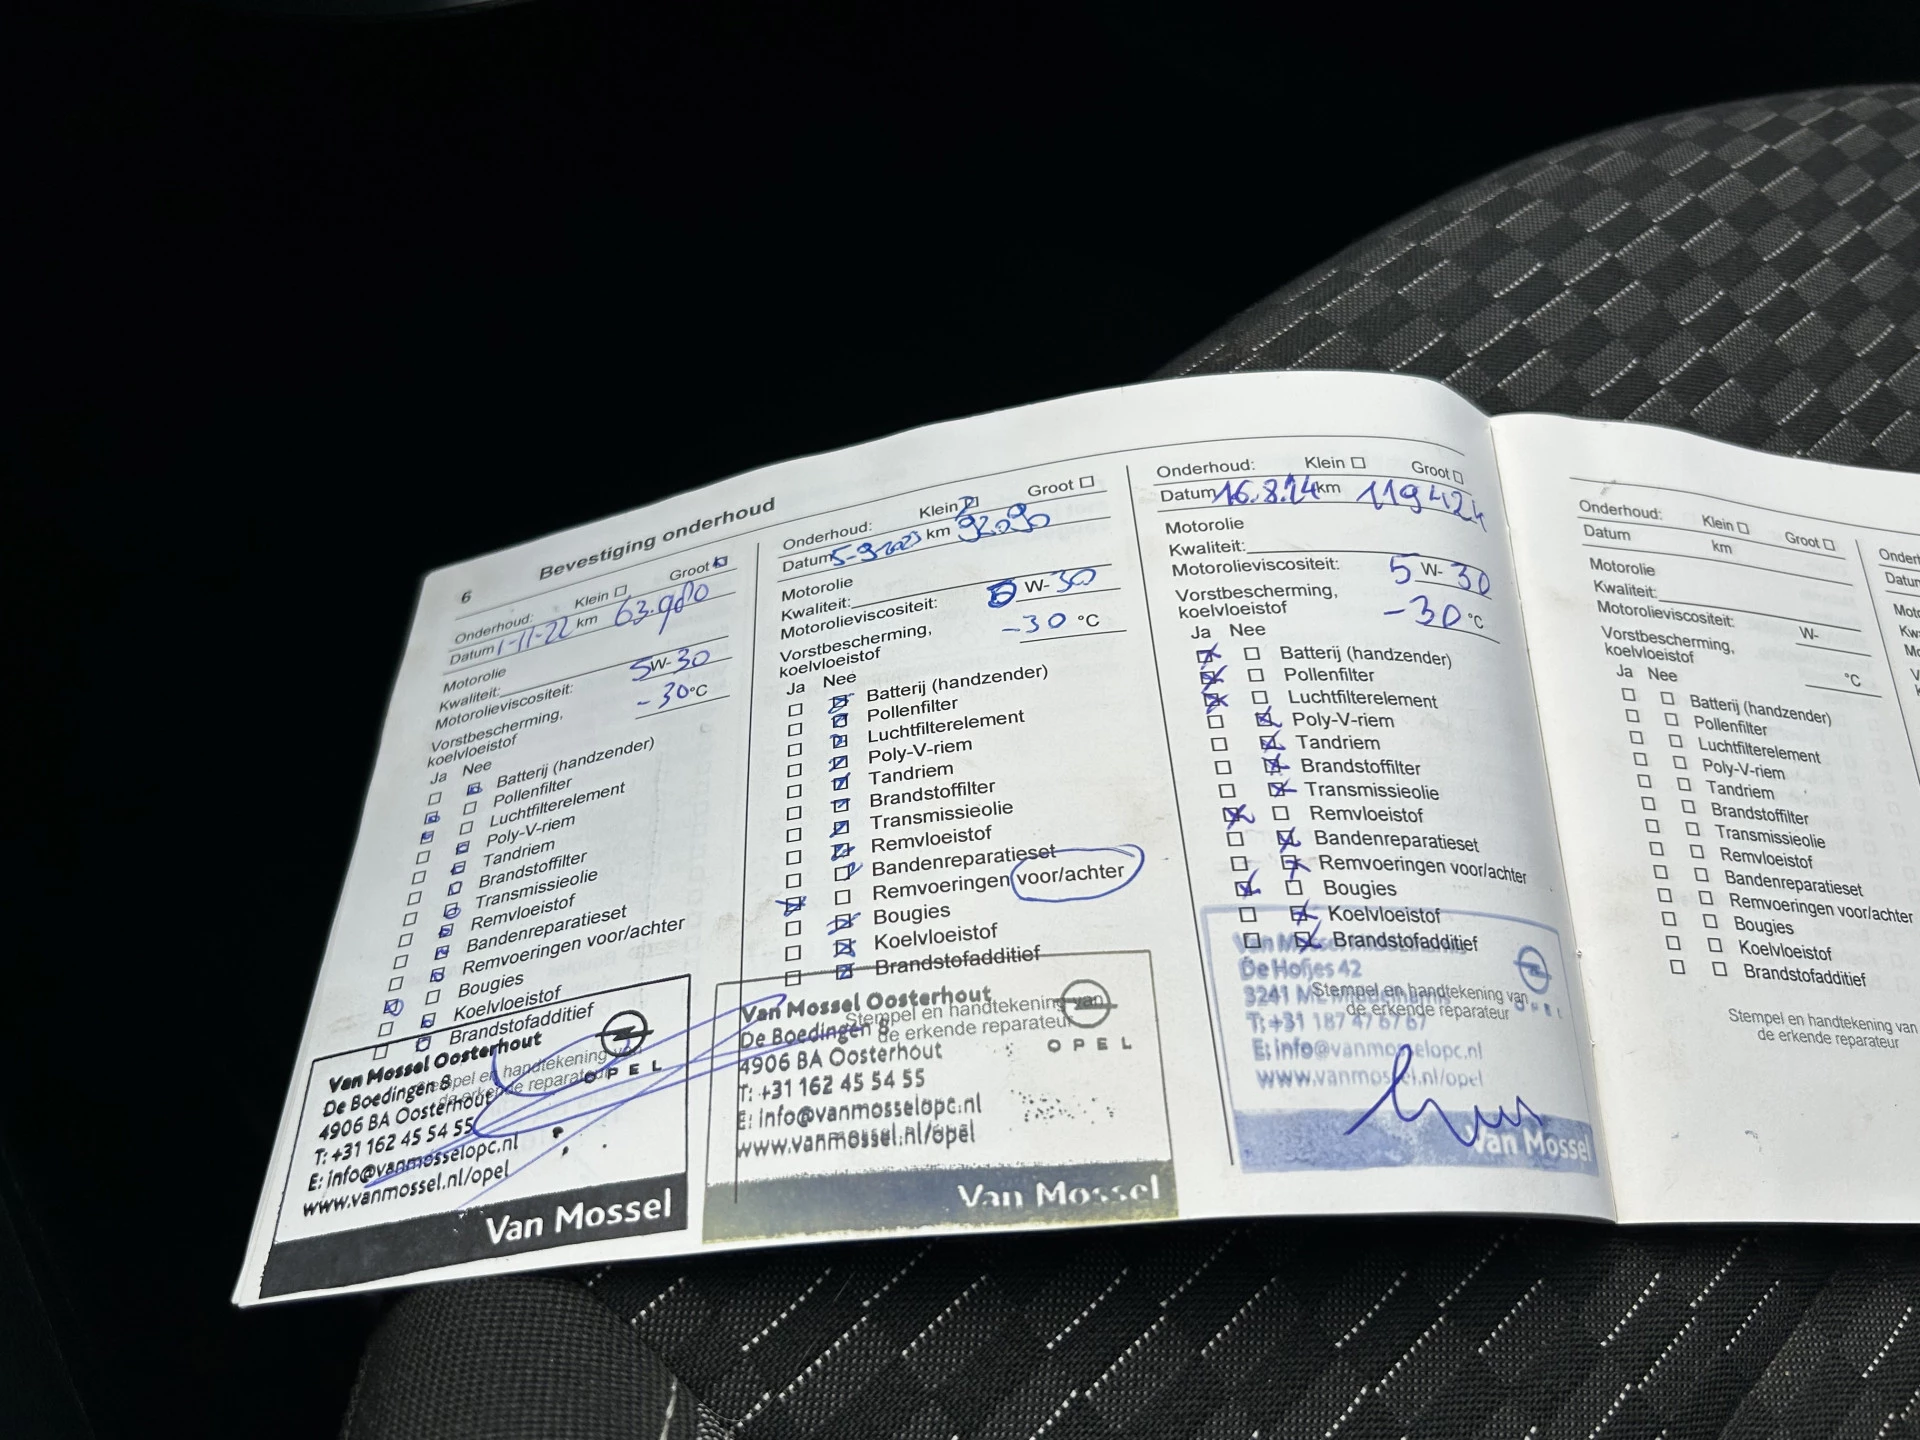 6
Bevestiging onderhoud
Onderhoud: Klein Groot
Datum 1-11-22 km 63.980
Motorolie
Kwaliteit:
Motorolieviscositeit: 5W-30
Vorstbescherming,
koelvloeistof -30°C
Ja Nee
Batterij (handzender)
Pollenfilter
Luchtfilterelement
Poly-V-riem
Tandriem
Brandstoffilter
Transmissieolie
Remvloeistof
Bandenreparatieset
Remvoeringen voor/achter
Bougies
Koelvloeistof
Brandstofadditief
Stempel en handtekening van
de erkende reparateur
Van Mossel Oosterhout
De Boedingen 8
4906 BA Oosterhout
T: +31 162 45 54 55
E: info@vanmosselopc.nl
www.vanmossel.nl/opel
OPEL
Van Mossel
Onderhoud: Klein Groot
Datum 5-9-2023 km 92090
Motorolie
Kwaliteit:
Motorolieviscositeit: 5 W-30
Vorstbescherming,
koelvloeistof -30 °C
Ja Nee
Batterij (handzender)
Pollenfilter
Luchtfilterelement
Poly-V-riem
Tandriem
Brandstoffilter
Transmissieolie
Remvloeistof
Bandenreparatieset
Remvoeringen voor/achter
Bougies
Koelvloeistof
Brandstofadditief
Stempel en handtekening van
de erkende reparateur
Van Mossel Oosterhout
De Boedingen 8
4906 BA Oosterhout
T: +31 162 45 54 55
E: info@vanmosselopc.nl
www.vanmossel.nl/opel
OPEL
Van Mossel
Onderhoud: Klein Groot
Datum 16.8.24 km 119424
Motorolie
Kwaliteit:
Motorolieviscositeit: 5 W-30
Vorstbescherming,
koelvloeistof -30 °C
Ja Nee
Batterij (handzender)
Pollenfilter
Luchtfilterelement
Poly-V-riem
Tandriem
Brandstoffilter
Transmissieolie
Remvloeistof
Bandenreparatieset
Remvoeringen voor/achter
Bougies
Koelvloeistof
Brandstofadditief
Stempel en handtekening van
de erkende reparateur
Van Mossel
De Hofjes 42
3241
T: +31 187 47 67 67
E: info@vanmosselopc.nl
www.vanmossel.nl/opel
OPEL
Van Mossel
Onderhoud: Klein Groot
Datum km
Motorolie
Kwaliteit:
Motorolieviscositeit: W-
Vorstbescherming,
koelvloeistof °C
Ja Nee
Batterij (handzender)
Pollenfilter
Luchtfilterelement
Poly-V-riem
Tandriem
Brandstoffilter
Transmissieolie
Remvloeistof
Bandenreparatieset
Remvoeringen voor/achter
Bougies
Koelvloeistof
Brandstofadditief
Stempel en handtekening van
de erkende reparateur